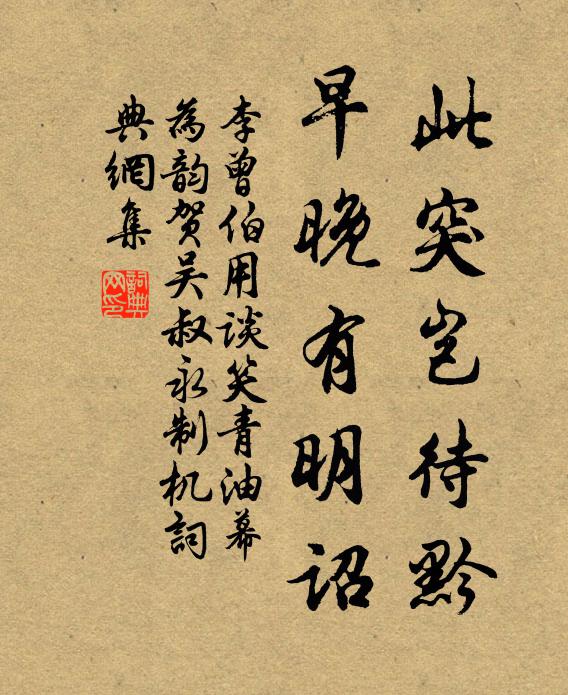 此突岂待黔
早晚有明詔
李曾伯用谈笑青油幕
為韵贺吴叔永制机詞
典網集
詞典网印